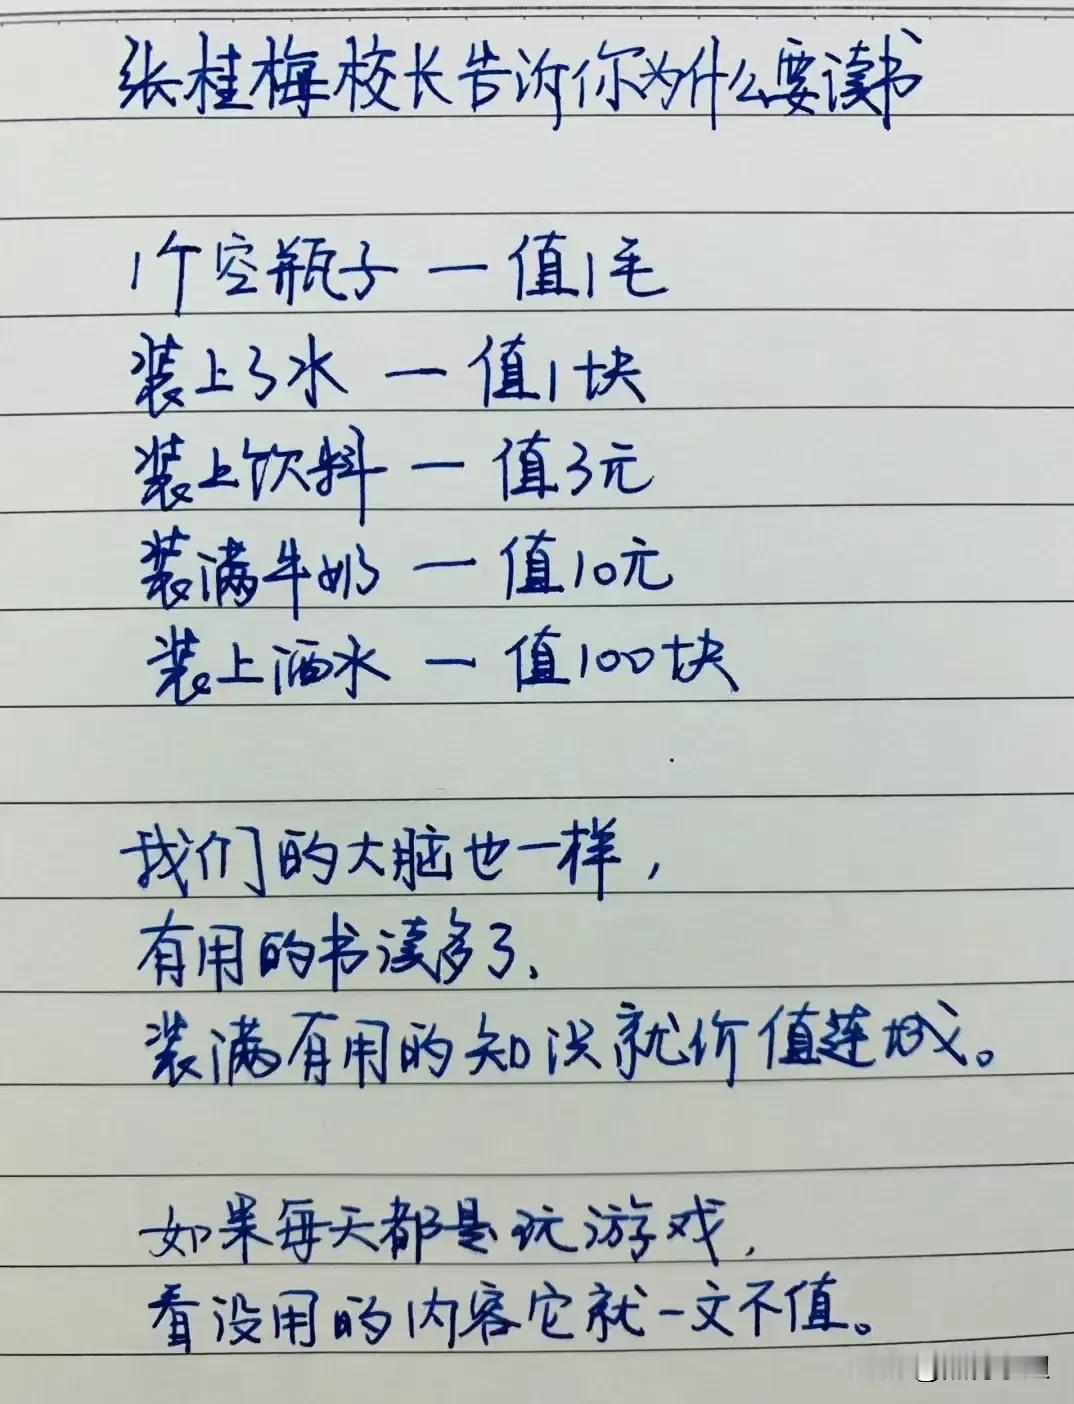 张桂梅校长告诉你为什么要读书
1个空瓶子一值1毛
装上了水一值1块
装上饮料一值3元
装满牛奶一值10元
装上酒水一值100块
我们的大脑也一样,
有用的书读多了、
装满有用的知识就价值连城。
如果每天都是玩游戏,
看没用的内容它就一文不值。